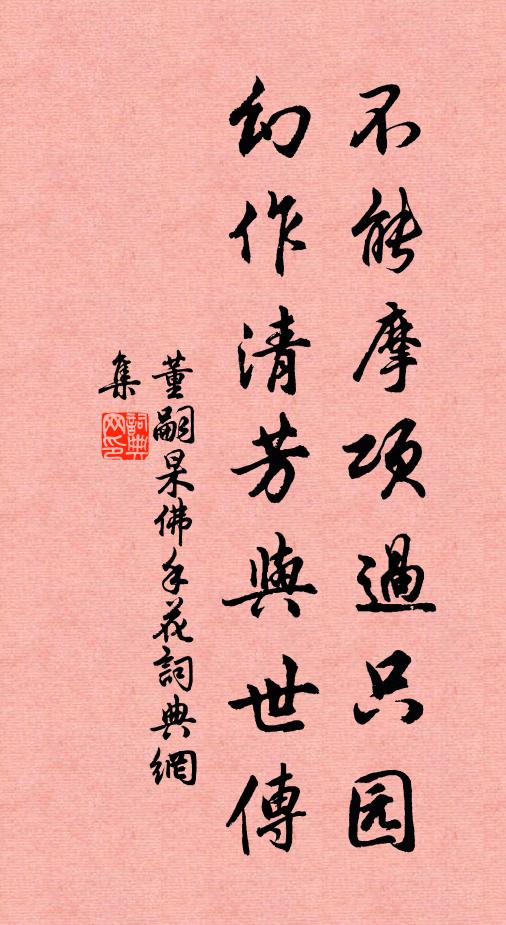 不能摩项過只园
幻作清芳與世傳
董嗣杲佛手花詞典網
集
詞典網印